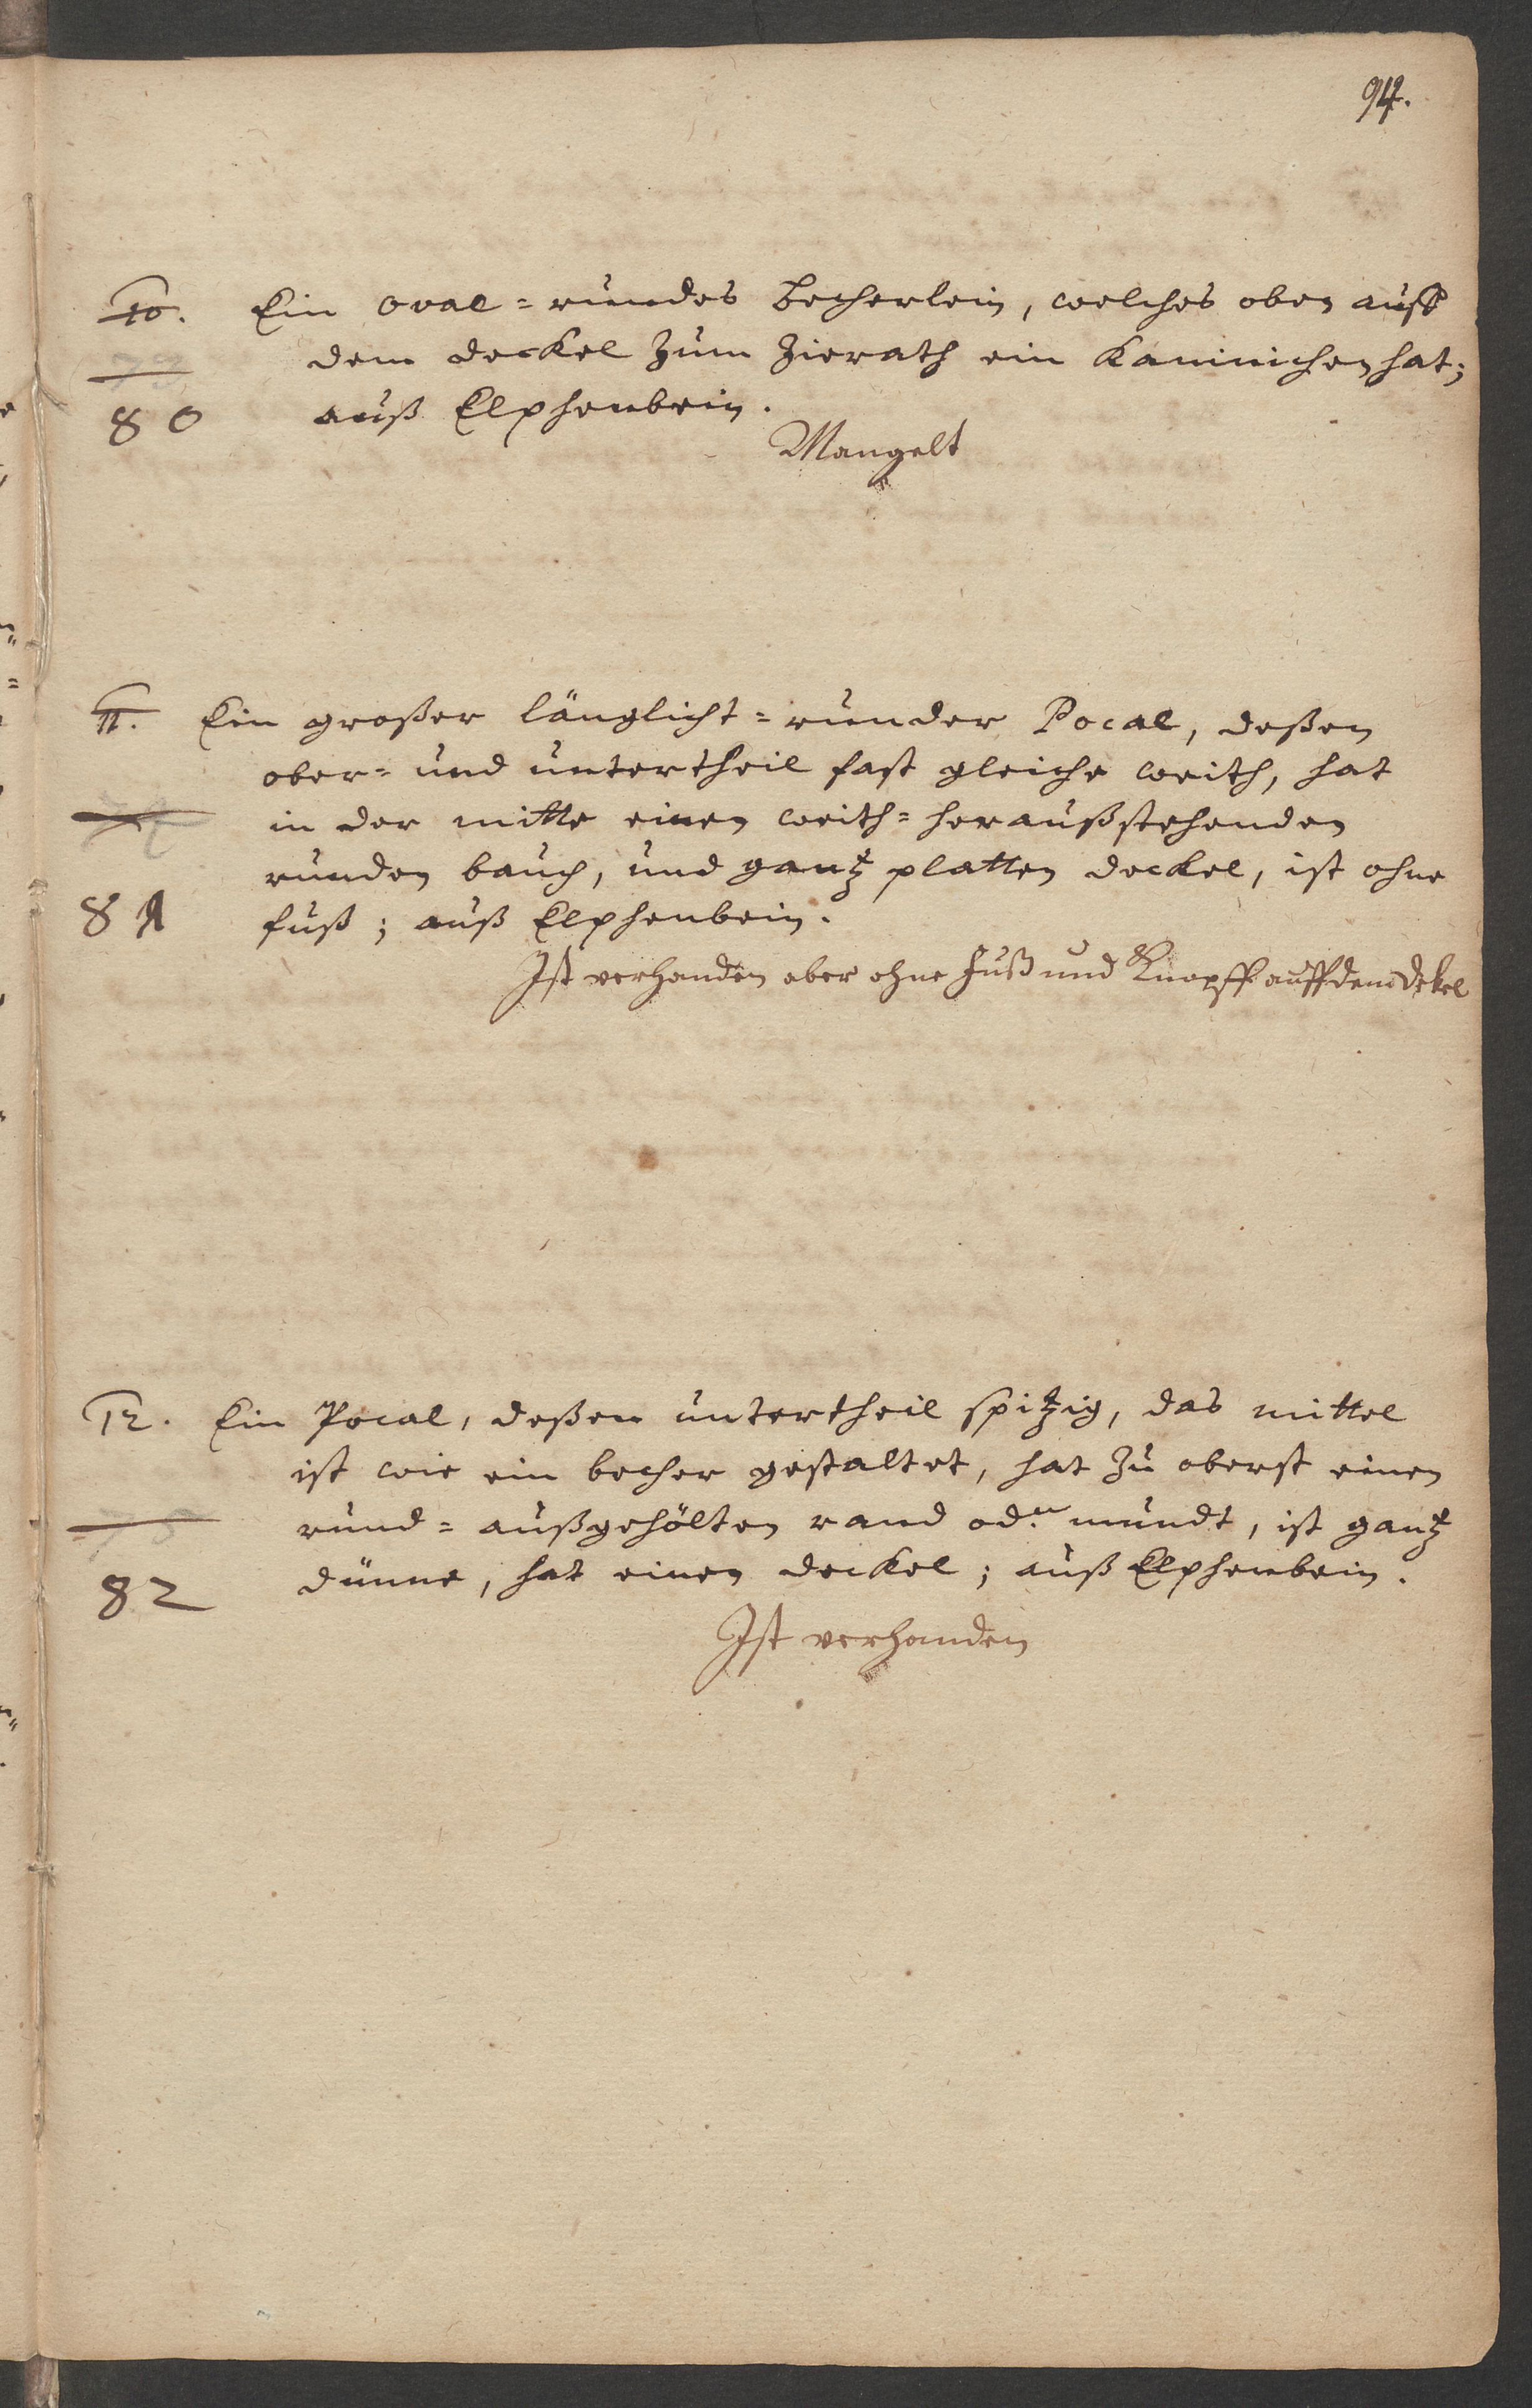 94.
10. Ein oval=rundes Becherlein, welches oben auff
dem deckel zum Zierath ein Kaninichen hat;
79
80 auß Elphenbein.
Mangelt
11. Ein großer länglicht=runder Pocal, deßen
ober= und untertheil fast gleiche weith, hat
in der mitte einen weith=heraußstehenden
runden bauch, und gantz platten deckel, ist ohne
81 fuß; auß Elphenbein.
Ist verhanden aber ohne Fuß und Knopff auff dem dekel
12. Ein Pocal, deßen untertheil spitzig, das mittel
ist wie ein becher gestaltet, hat zu oberst einen
rund=außgehölten rand od.er mundt, ist gantz
82 dünne, hat einen deckel; auß Elphenbein.
Ist verhanden